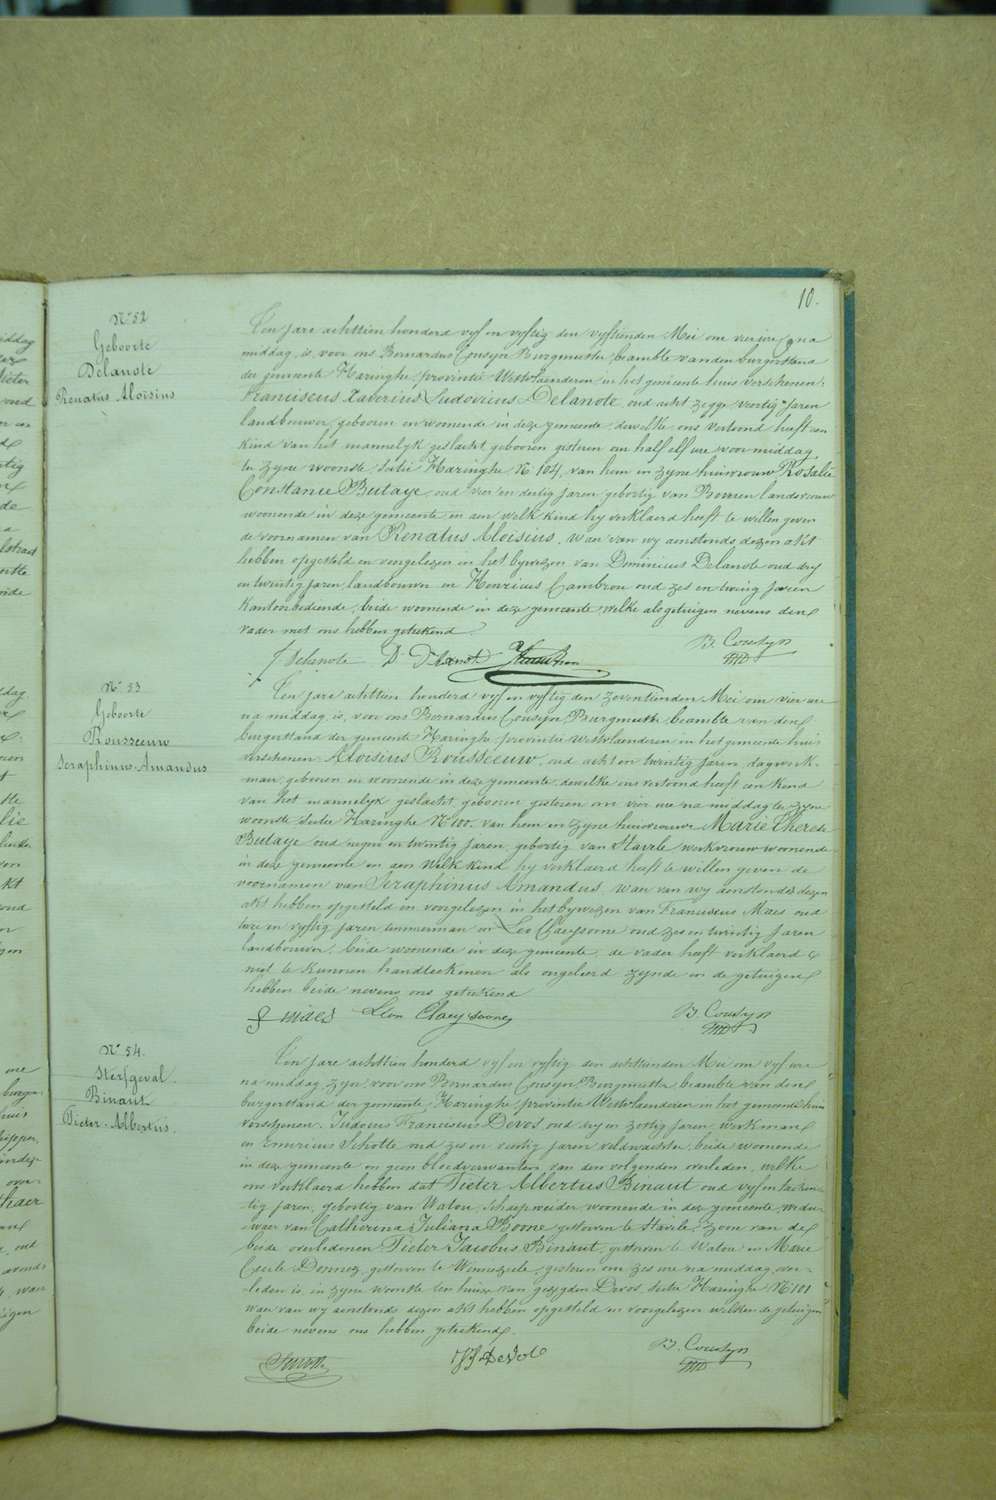 10.
N° 52
Geboorte
Delanote
Renatus Aloïsius
Ten jare achttien honderd vyf en vyftig den vyftienden Mei om vier ure na
middag, is, voor ons Bernardus Cousyn Burgmeester, beambte van den burgerstand
der gemeente Haringhe, provintie Westvlaenderen in het gemeente huis verschenen:
Franciscus Xaverius Ludovicus Delanote, oud acht zegge veertig Jaren
landbouwer, geboren en wonende in deze gemeente, dewelke ons vertoond heeft een
kind van het mannelyk geslacht geboren gisteren om half elf ure voormiddag
te zyne woonste, sectie Haringhe N° 104, van hem en zyne huisvrouw Rosalie
Constantie Butaye, oud vier en dertig jaren gebortig van landsvrouw
wonende in deze gemeente en aen welk kind hy verklaerd heeft te willen geven
de voornamen van Renatus Aloïsius. Waer van wy aenstonds dezen akt
hebben opgesteld en voorgelezen in het bywezen van Dominicus Delanote oud dry
en twintig jaren, landbouwer en Henricus Cambron oud zes en twintig jaren
Kantonbediende, beide wonende in deze gemeente, welke als getuigen nevens den
vader met ons hebben geteekend.
f Delanote D. Delanote B. Cousyn
N° 53
Geboorte
Rousseeuw
Seraphinus-Amandus
Ten jare achttien honderd vyf en vyftig den zeventienden Mei om vier ure
na middag, is, voor ons Bernardus Cousyn, Burgmeester beambte van den
burgerstand der gemeente Haringhe, provintie Westvlaenderen in het gemeente huis
verschenen Aloïsius Rousseeuw, oud acht en twintig jaren, dagwerk-
man, geboren en wonende in deze gemeente, dewelke ons vertoond heeft een kind
van het mannelyk geslacht geboren gisteren om vier ure na middag te zyne
woonste sectie Haringhe N° 100, van hem en zyne huisvrouwe Marie Therese
Butaye oud negen en twintig jaren, gebortig van Stavele werkvrouw wonende
in deze gemeente en aen welk kind hy verklaerd heeft te willen geven de
voornamen van Seraphinus Amandus. Waer van wy aenstonds dezen
akt hebben opgesteld en voorgelezen in het bywezen van Franciscus Maes oud
twee en vyftig jaren timmerman en Leo Claeysoone oud zes en twintig jaren
landbouwer, beide wonende in deze gemeente, de vader heeft verklaerd
niet te kunnen handteekenen als ongeleerd zynde en de getuigen
hebben beide nevens ons geteekend
f maes Leon Claeysoone B. Cousyn
N° 54.
Sterfgeval.
Binaut
Pieter-Albertus.
Ten jare achttien honderd vyf en vyftig den achttienden Mei om vyf ure
na middag, zyn voor ons Bernardus Cousyn, Burgmeester, beambte van den
burgerstand der gemeente Haringhe provintie Westvlaenderen in het gemeente huis
verschenen. Judocus Franciscus Devos oud dry en zestig jaren, werkman
en Emericus Schotte oud zes en veertig jaren veldwachter, beide wonende
in deze gemeente en geen bloedverwanten van den volgenden overleden, welke
ons verklaerd hebben dat Pieter Albertus Binaut oud vyf en tachen-
tig jaren, gebortig van Watou, Schaepweider wonende in deze gemeente wedu-
waer van Catherina Juliana Boone gestorven te Stavele, Zoon van de
beide overledenen Pieter Jacobus Binaut, gestorven te Watou en Marie
Cecile gestorven te Winnezeele, gisteren om zes ure na middag over-
leden is in zyne woonste ten huize van gezegden Devos sectie Haringhe N° 101
waer van wy aenstonds dezen akt hebben opgesteld en voorgelezen welken de getuigen
beide nevens ons hebben geteekend.
JF Devos B. Cousyn